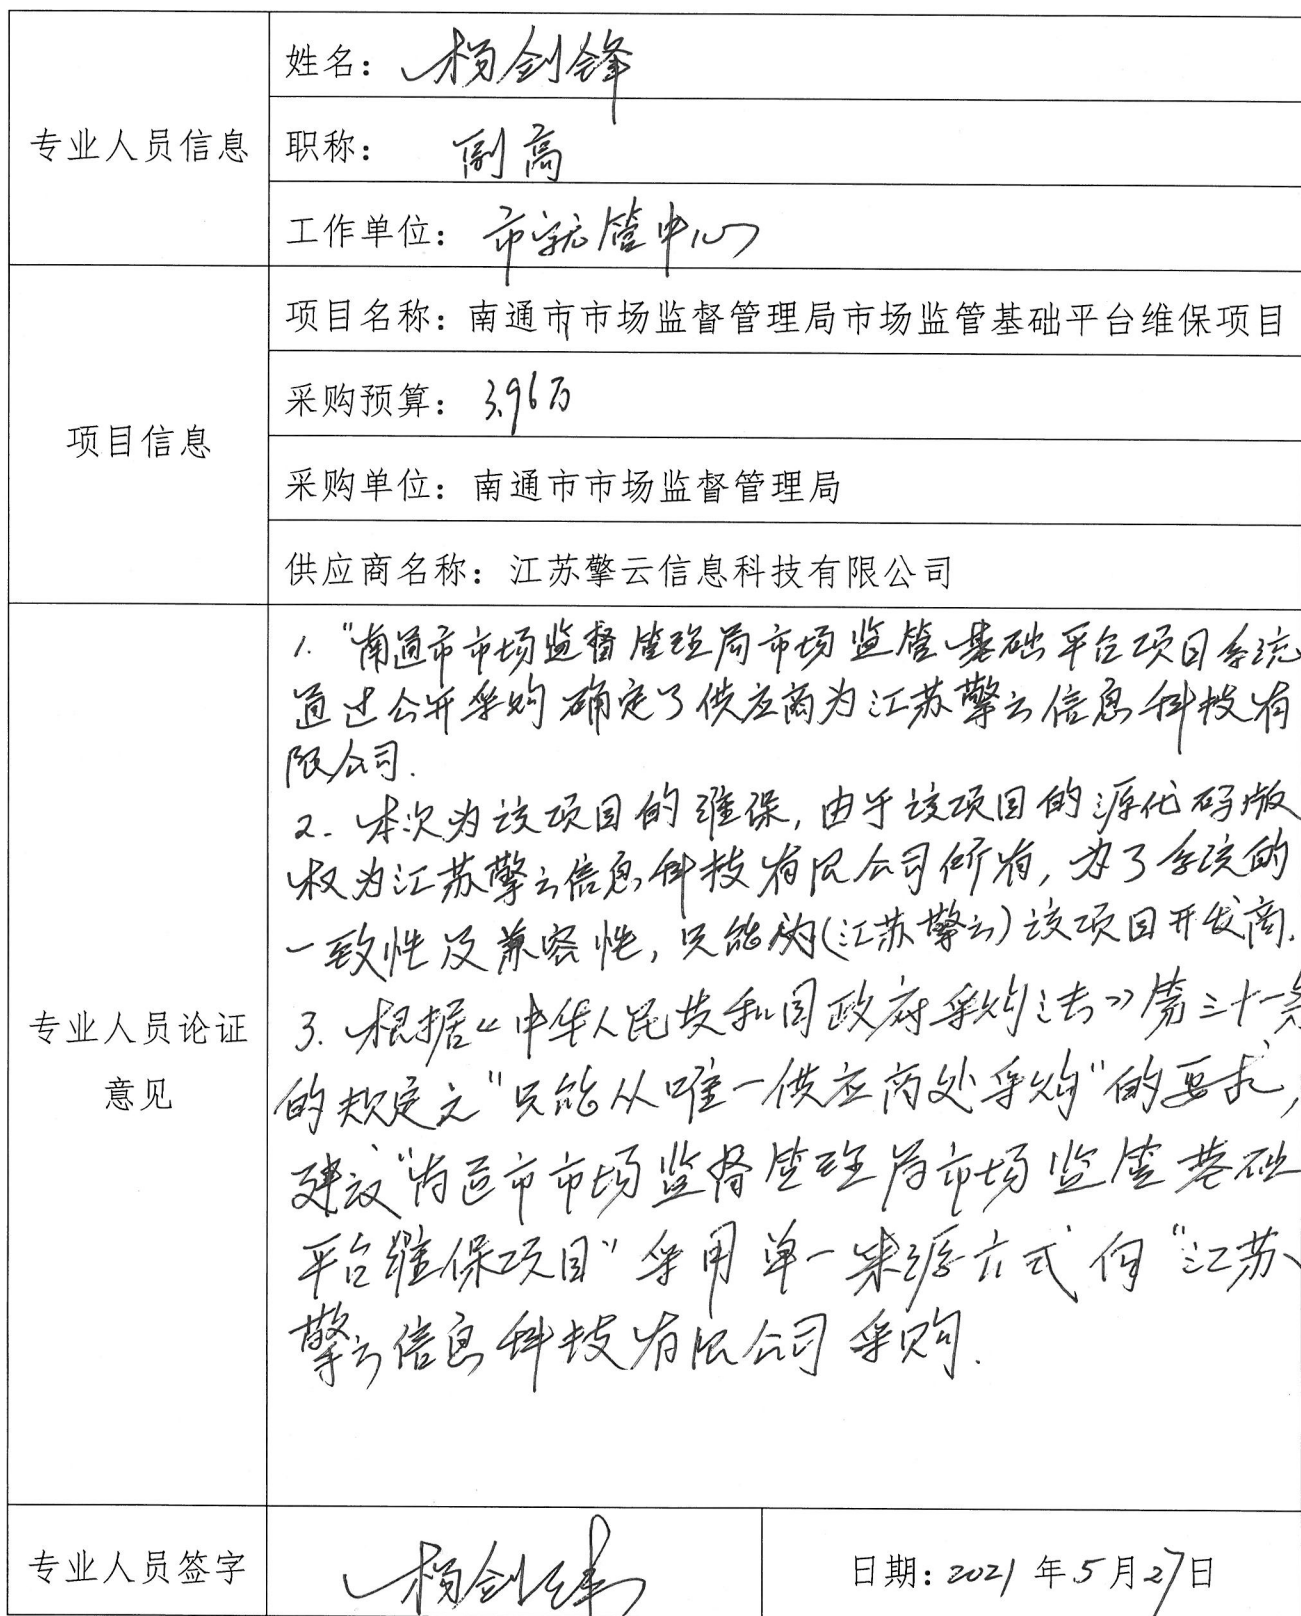 专业人员信息
姓名：杨剑锋
职称：副高
工作单位：市就管中心
项目信息
项目名称：南通市市场监督管理局市场监管基础平台维保项目
采购预算：3.96万
采购单位：南通市市场监督管理局
供应商名称：江苏擎云信息科技有限公司
专业人员论证
意见
1. "南通市市场监督管理局市场监管基础平台项目系统
通过公开采购确定了供应商为江苏擎云信息科技有
限公司.
2. 本次为该项目的维保, 由于该项目的源代码版
权为江苏擎云信息科技有限公司所有, 为了系统的
一致性及兼容性, 只能为(江苏擎云)该项目开发商.
3. 根据《中华人民共和国政府采购法》第三十一条
的规定之"只能从唯一供应商处采购"的要求,
建议"南通市市场监督管理局市场监管基础
平台维保项目"采用单一来源方式向"江苏
擎云信息科技有限公司采购.
专业人员签字
杨剑锋
日期：2021年5月27日